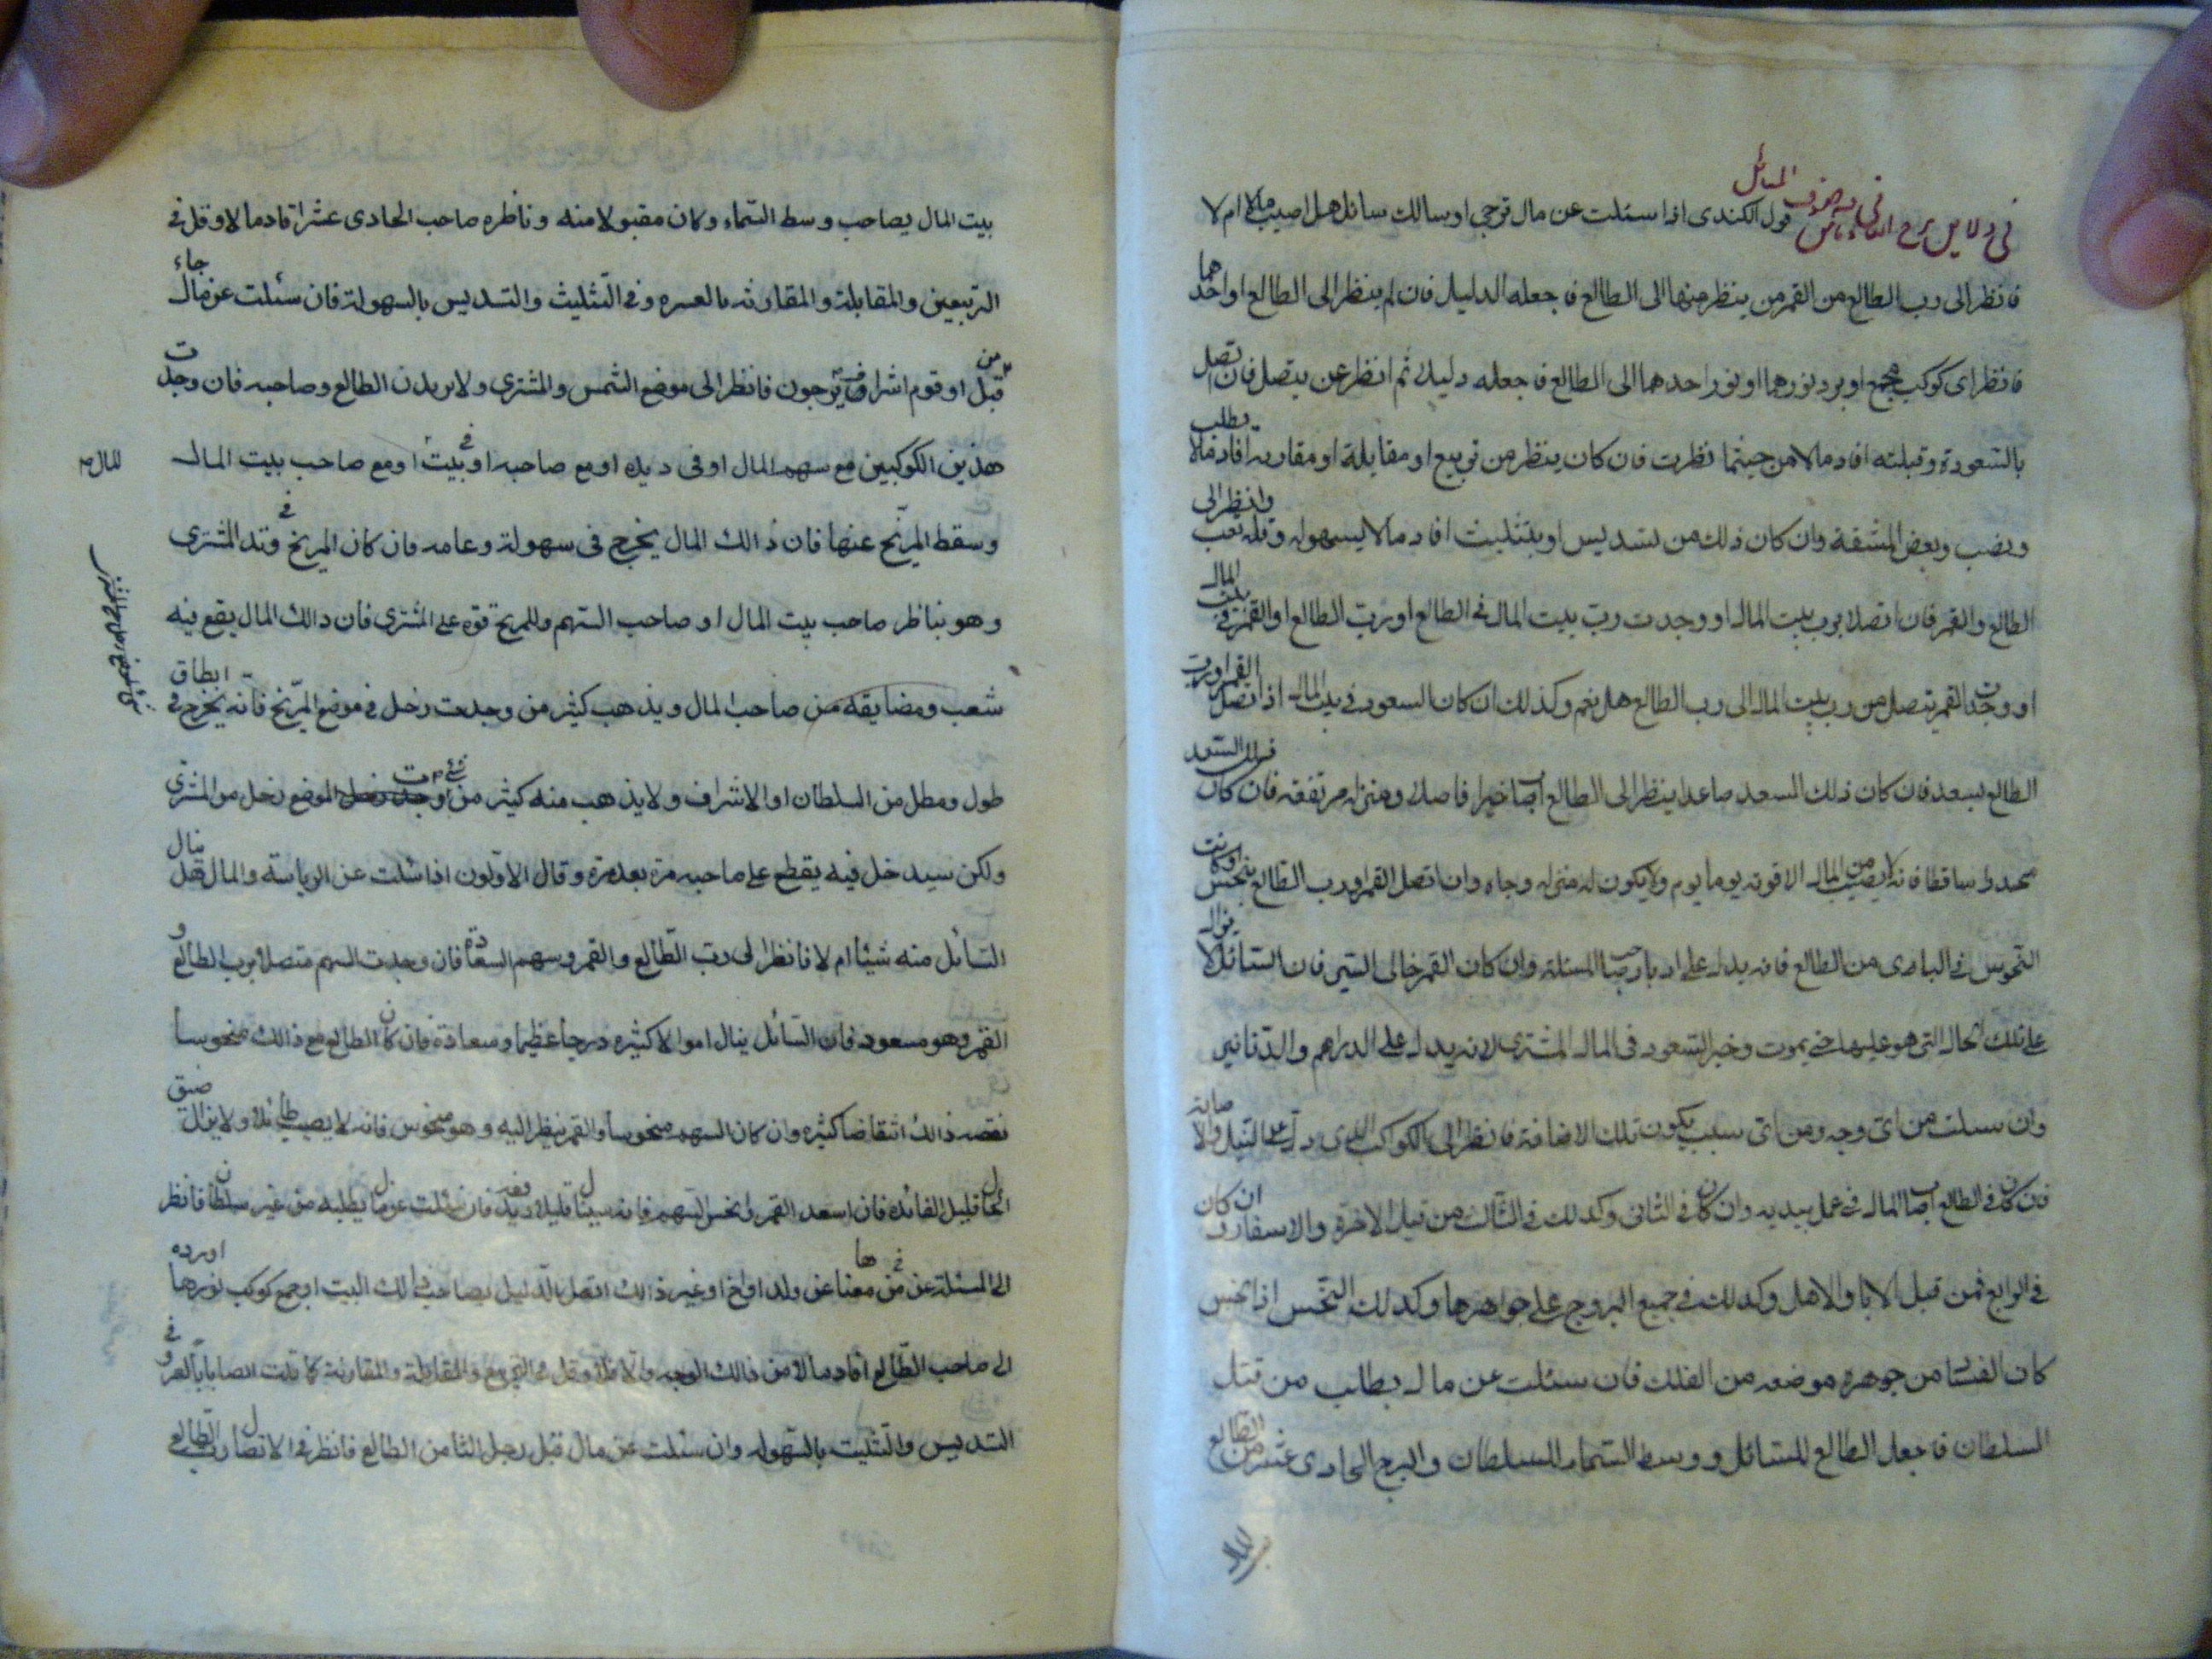 قول الكندى اذا سئلت عن مال ترجى او سالك سائل هل اصيب مالا ام لا
فانظر الى رب الطالع من القمر من ينظر منهما الى الطالع فاجعله الدليل فان لم ينظر الى الطالع او احدهما
فانظر اى كوكب يجمع او يرد نورهما او نور احدهما الى الطالع فاجعله دليلا ثم انظر عن يتصل فان اتصل
بالسعودة وقبلته افاد مالا من حيثما نظرت فان كان ينظر من تربيع او مقابلة او مقارنة افاد مالا بطلب
ونصب وبعض المشقة وان كان ذلك من تسديس او بتثليث افاد مالا بسهوله وقلة تعب وانظر الى
الطالع والقمر فان اتصلا برب بيت المال او وجدت رب بيت المال فى الطالع او رب الطالع او القمر فى بيت المال
او وجدت القمر يتصل من رب بيت المال الى رب الطالع هل نعم وكذلك ان كان السعود فى بيت المال اذا اتصل القمر او رب
الطالع بسعد فان كان ذلك السعد صاعدا ينظر الى الطالع اصاب خيرا فاضلا ومنزله مرتفعة فان كان ذلك السعد
ساقطا فانه لا يصيب من المال الا قوته يوما بيوم ولا يكون له منزله وجاه وان اتصل القمر او رب الطالع بنحس او كانت
النحوس فى البادى من الطالع فانه يدل على ادبار صاحب المسئلة وان كان القمر خالى السير فان السائل لا يزال
على تلك الحال التى هو عليها حتى يموت وخير السعود فى المال المشترى لانه يدل على الدراهم والدنانير
وان سئلت من اى وجه ومن اى سبب يكون تلك الاضافة فانظر الى الكواكب الذى دل على النيل
فان كان فى الطالع اصاب المال فى عمل بيديه وان كان فى الثانى وكذلك فى الثالث من قبل الاخوة والاسفار وان كان
فى الرابع فمن قبل الابا والاهل وكذلك فى جميع البروج على جواهرها وكذلك النحس اذا نحس
كان الفساد من جوهره موضعه من الفلك فان سئلت عن مال يطالب من قبل
السلطان فاجعل الطالع للسائل ووسط السماء للسلطان والبرج الحادى عشر من الطالع
بيت المال بصاحب وسط السماء وكان مقبولا منه وناظره صاحب الحادى عشر افاد مالا وقل فى
التربيعين والمقابلة والمقارنة بالعسره وفى التثليث والتسديس بالسهولة فان سئلت عن مال جاء
من قبل او قوم اشراف يرجون فانظر الى موضع الشمس والمشترى ولابد من الطالع وصاحبه فان وجدت
هذين الكوكبين مع سهم المال او فى ديده او مع صاحبه او فى بيت او مع صاحب بيت المال
وسقط المريخ عنها فان ذالك المال يخرج فى سهولة وعامه فان كان المريخ فى وتد المشترى
وهو يناظر صاحب بيت المال او صاحب السهم وللمريخ قوة على المشترى فان ذالك المال يقع فيه
شعب ومضايقه من صاحب المال ويذهب كثير من وجدت زحل فى موضع المريخ فانه يخرج فى ابطاق
طول ومطل من السلطان او الاشراف ولا يذهب منه كثير من الموضع زحل من المشترى
ولكن سيدخل فيه يقطع على صاحبه مرة بعد مرة وقال الاولون اذا سئلت عن الرياسة والمال هل ينال
السائل منه شيئا ام لا فانظر الى رب الطالع والقمر وسهم السعادة فان وجدت السهم متصلا برب الطالع و
القمر وهو مسعود فان السائل ينال اموالا كثيره درجا عظيما وسعادة فان كان الطالع مع ذالك منحوسا
نقصه ذالك انتقاضا كثيره وان كان السهم منحوسا والقمر ينظر اليه وهو منحوس فانه لا يصيب طائلا ولا يزال ضيق
الحال قليل الفائده فان اسعد القمر ونحس السهم فانه سينال قليلا فان سئلت عن مال يطلبه من غير سلطان فانظر
الى المسئلة عن من معنا عن ولد او اخ او غير ذالك اتصل الدليل بصاحب ذالك البيت او جمع كوكب نورهما او رده
الى صاحب الطالع افاد مالا من ذالك الوجه والا فلا وقل فى التربيع والمقابلة والمقارنة كما قلت
التسديس والتثليث بالسهوله وان سئلت عن مال قبل رجل الثامن الطالع فانظر فى الاتصال رب الطالع